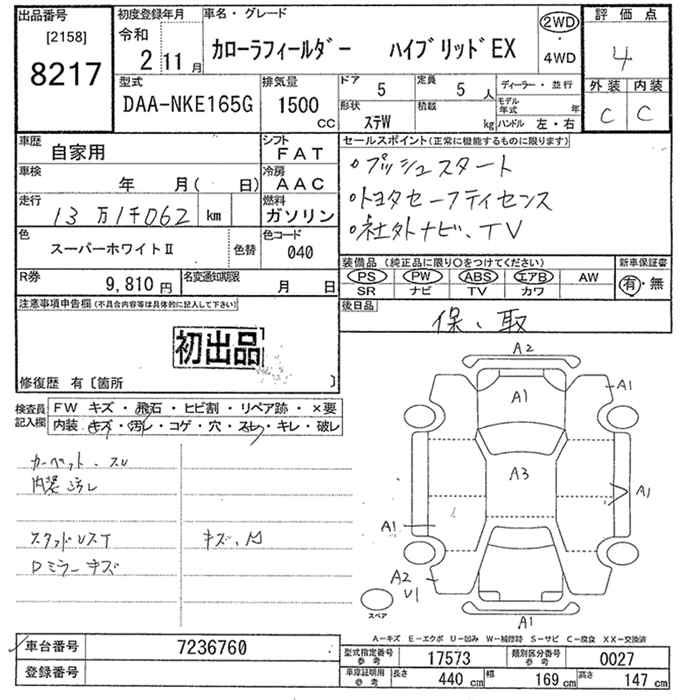 出品番号
[2158]
8217
初度登録年月
令和
2 11月
車名・グレード
カローラフィールダー ハイブリッドEX
2WD
・
4WD
評価点
4
外装 内装
C C
型式
DAA-NKE165G
排気量
1500 CC
ドア 5
定員 5 人
形状 ステW
積載 kg
ディーラー・並行
モデル年式 年
ハンドル 左・右
車歴
自家用
シフト
FAT
車検
年 月( 日)
冷房
AAC
走行
13万1千062 km
燃料
ガソリン
色
スーパーホワイトⅡ
色替
色コード
040
R券 9,810円
名変通知期限
月 日
セールスポイント(正常に機能するものに限ります)
・プッシュスタート
・トヨタセーフティセンス
・社外ナビ、TV
装備品 (純正品に限り〇をつけてください)
PS PW ABS エアB AW
SR ナビ TV カワ
新車保証書
有・無
後日品
保、取
注意事項申告欄(不具合内容等は具体的に記入して下さい)
初出品
修復歴 有〔箇所 〕
検査員記入欄
FW キズ・飛石・ヒビ割・リペア跡・×要
内装 キズ・汚レ・コゲ・穴・スレ・キレ・破レ
カーペット、スレ
内装汚レ
スタッドレスT キズ、凹
Dミラーキズ
A2
A1
A1
A3
A1
A1
A2
U1
A1
スペア
A-キズ E-エクボ U-凹み W-補修跡 S-サビ C-腐食 XX-交換済
車台番号 7236760
登録番号
型式指定番号 参考 17573
類別区分番号 参考 0027
車庫証明用 参考 長さ 440 cm 幅 169 cm 高さ 147 cm